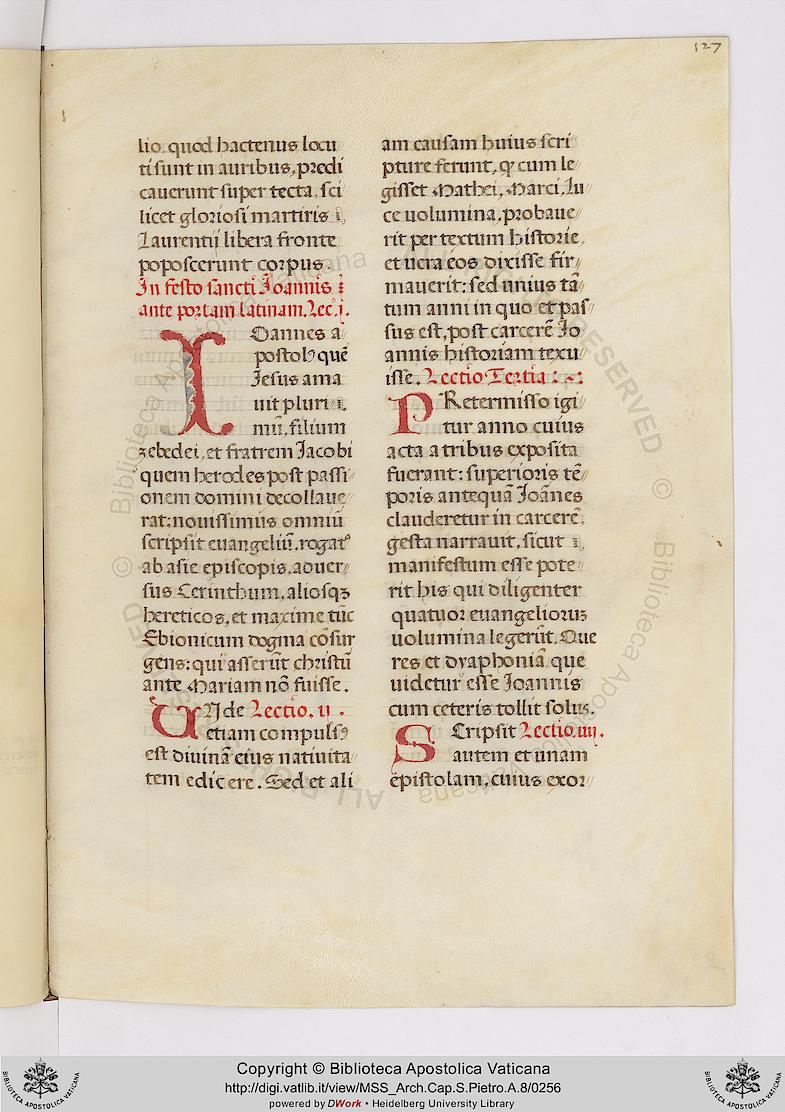 127
lio. quod hactenus locu
ti sunt in auribus, predi
cauerunt super tecta. sci
licet gloriosi martiris
Laurentij libera fronte
poposcerunt corpus.
In festo sancti Joannis
ante portam latinam. Lec. i.
IOannes a
postolꝰ quē
Jesus ama
uit pluri
mū, filium
zebedei, et fratrem Jacobi
quem herodes post passi
onem domini decollaue
rat: nouissimus omniū
scripsit euangeliū. rogatꝰ
ab asie episcopis, aduer
sus Cerinthum, aliosqꝫ
hereticos, et maxime tūc
Ebionicum dogma cōsur
gens: qui asserūt christū
ante Mariam nō fuisse.
UNde Lectio. ii.
etiam compulsꝰ
est diuinā eius natiuita
tem edicere. Sed et ali
am causam huius scri
pture ferunt, ꝙ cum le
gisset Mathei, Marci, Lu
ce uolumina, probaue
rit per textum historie,
et uera eos dixisse fir
mauerit: sed unius tā
tum anni in quo et pas
sus est, post carcerē Jo
annis historiam texu
isse. Lectio Tertia
PRetermisso igi
tur anno cuius
acta a tribus exposita
fuerant: superioris tē
poris antequā Joānes
clauderetur in carcerē,
gesta narrauit, sicut
manifestum esse pote
rit his qui diligenter
quatuor euangelioruꝫ
uolumina legerūt. Que
res et dyaphoniā que
uidetur esse Joannis
cum ceteris tollit solus.
SCripsit Lectio. iiij.
autem et unam
epistolam, cuius exor
Copyright © Biblioteca Apostolica Vaticana
http://digi.vatlib.it/view/MSS_Arch.Cap.S.Pietro.A.8/0256
powered by DWork • Heidelberg University Library